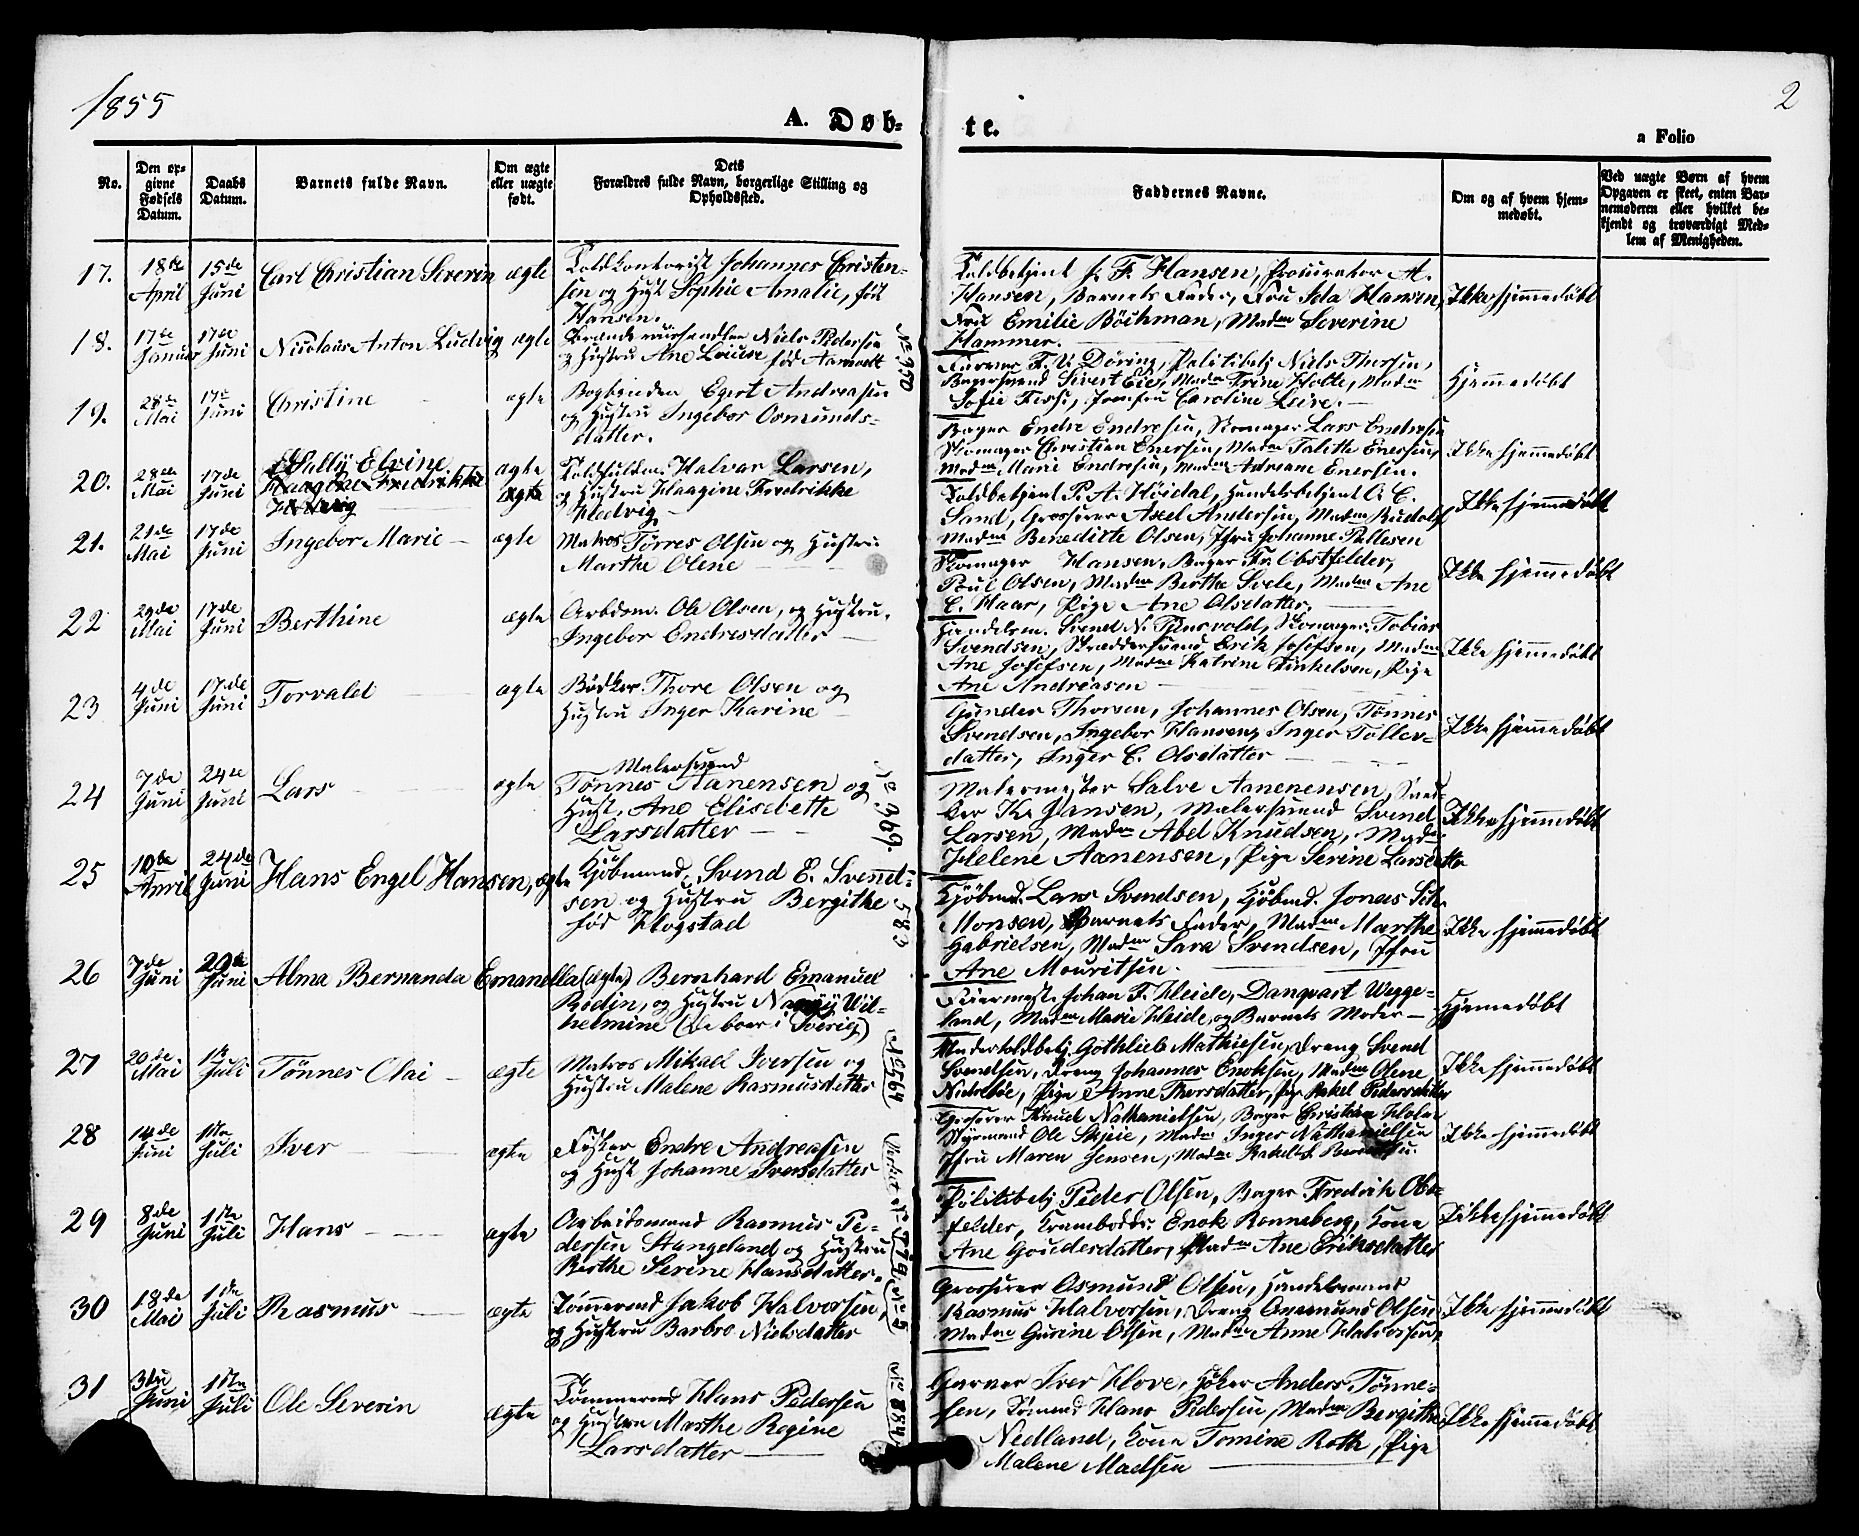 1855
2
A. Døb-
te.
a Folio
No.
Den op-
givne
Fødsels
Datum.
Daabs
Datum.
Barnets fulde Navn.
Om ægte
eller uægte
født.
Dets
Forældres fulde Navn, borgerlige Stilling og
Opholdssted.
Faddernes Navne.
Om og af hvem hjem-
medøbt.
Ved uægte Børn af hvem
Opgaven er skeet, enten Bar-
nemoderen eller hvilket be-
kjendt og troværdigt Med-
lem af Menigheden.
17. 18de April 15de Juni Carl Christian Severin ægte
Toldkontorist Johannes Christen-
sen og Hust Sophie Amalie, født
Hansen.
Toldbetjent F. Hansen, Procurator A.
Hansen, Barnets Fader, Fru Ida Hansen,
Fru Emilie Böchman, Madm Severine
Hammer.
Ikke hjemmedøbt
18. 17de Januar 17de Juni Nicolai Anton Ludvig ægte
Niels Pedersen
og Hustru Ane Lovise født Aamodt
No 350
Farver F. V. Döring, Politibetj Niels Thorsen,
Bagersvend Sivert Eies, Madm Trine Holte, Madm
Sofie, Jomfru Caroline Leire.
Hjemmedøbt
19. 28de Mai 17de Juni Christine ægte
Bogbinder Egert Andreasen
og Hustru Ingebor Osmunds-
datter.
Bager Endre Endresen, Skomager Lars Endresen
Skomager Christian Enersen, Madm Talitte Enersen,
Madm Marie Endresen, Madm Adriane Enersen.
Ikke hjemmedøbt
20. 28de Mai 17de Juni Sally Elvine
Haagine Fredrikke
Hedvig
ægte
ægte
Halvor Larsen,
og Hustru Haagine Fredrikke
Hedvig
Toldbetjent P. A. Höidal, Handelsbetjent O. C.
Sand, Grosserer Axel Andersen, Madm Rudolf,
Madm Beneditte Olsen, Jfru Johanne Pallesen
Ikke hjemmedøbt
21. 21de Mai 17de Juni Ingebor Marie ægte
Matros Törres Olsen og Hustru
Marthe Olene
Skomager Hansen, Bager Fr. Obstfelder,
Poul Olsen, Madm Berthe Svele, Madm Ane
C. Haar, Pige Ane Olsdatter.
Ikke hjemmedøbt
22 29de Mai 17de Juni Berthine ægte
Arbdsm. Ole Olsen, og Hustru
Ingebor Endresdatter
Handelsm. Svend N. Tjensvold, Skomager Tobias
Svendsen, Skræddersvend Erik Josefsen, Madm
Ane Josefsen, Madm Katrine, Pige
Ane Andreasen
Ikke hjemmedøbt
23 4de Juni 17de Juni Torvald ægte
Bödker Thore Olsen og
Hustru Inger Karine
Gunder Thorsen, Johannes Olsen, Tönnes
Svendsen, Ingebor Hansen, Inger Toller-
datter, Inger C. Olsdatter
Ikke hjemmedøbt
24 7de Juni 24de Juni Lars ægte
Malersvend
Tönnes Aanensen og
Hust. Ane Elisebeth
Larsdatter
No 369.
Malermester Salve Aanenensen,
K. Jansen, Malersvend Svend
Larsen, Madm Abel Knudsen, Madm
Helene Aanensen, Pige Serine Larsdatter
Ikke hjemmedøbt
25 10de April 24de Juni Hans Engel Hansen, ægte
Kjöbmand, Svend E. Svend-
sen og Hustru Bergithe
født Hogstad
583
Kjöbmd. Lars Svendsen, Kjöbmd. Jonas Sch.
Monsen, Barnets Fader, Madm Marthe
Gabrielsen, Madm Sara Svendsen, Jfru
Ane Mouritsen.
Ikke hjemmedøbt
26 7de Juni 29de Juni Alma Bernanda Emanella (ægte)
Bernhard Emanuel
Rodin, og Hustru Nanny Wil-
helmine (de boer i Sverig)
Johan F. Heide, Danqvart Wegge-
land, Madm Marie Heide, og Barnets Moder
Hjemmedøbt
27 20de Mai 1ste Juli Tönnes Olai ægte
Matros Mikael Iversen og
Hustru Malene Rasmusdatter
No 564
Undertoldbetj. Gothlieb Mathiesen, Dreng Svend
Svendsen, Dreng Johannes Enoksen, Madm Olene
Nicolise, Pige Anne Thorsdatter, Pige Rakel Pedersdatter
Ikke hjemmedøbt
28 14de Juni 1ste Juli Iver ægte
Fisker Endre Andreasen
og Hust Johanne Svensdatter
Grosserer Knud Nathanielsen, Bager Christian Holm
Styrmand Ole Skjeie, Madm Inger Nathanielsen
Jfru Maren Jensen, Madm Rakel
Ikke hjemmedøbt
29 8de Juni 1ste Juli Hans ægte
Arbeidsmand Rasmus Pe-
dersen Stangeland og Hustru
Berthe Serine Hansdatter.
Politibetj Peder Olsen, Bager Fredrik Obs-
felder, Enok Ronneberg, Kone
Ane Goudesdatter, Madm Ane Eriksdatter
Ikke hjemmedøbt
30 18de Mai 1ste Juli Rasmus ægte
Tömmermd Jakob Halvorsen,
og Hustru Barbro Nielsdatter
No 5
Grosserer Osmund Olsen, Handelsmand
Rasmus Halvorsen, Dreng Olsen
Madm Gurine Olsen, Madm Anne Halvorsen,
Ikke hjemmedøbt
31 3die Juni 1ste Juli Ole Severin ægte
Tömmermd Hans Pedersen
og Hustru Marthe Regine
Larsdatter
No 884
Garver Iver Hove, Höker Anders Tönne-
sen, Tömmd Hans Pedersen, Madm Bergithe
Nedland, Kone Tomine Roth, Pige
Malene Madsen
Ikke hjemmedøbt